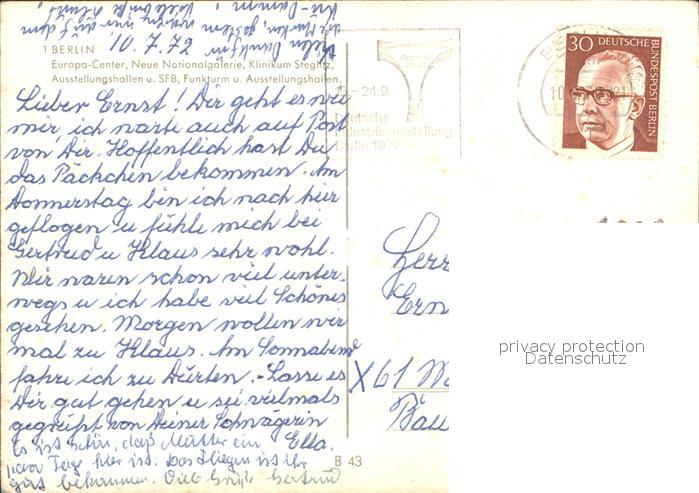 1 BERLIN 10.7.72
Europa-Center, Neue Nationalgalerie, Klinikum Steglitz,
Ausstellungshallen u. SFB, Funkturm u. Ausstellungshallen.
Lieber Ernst! Dir geht es wie
mir, ich warte auch auf Post
von Dir. Hoffentlich hast Du
das Päckchen bekommen. Am
Donnerstag bin ich nach hier
geflogen u fühle mich bei
Gertrud u Klaus sehr wohl.
Wir waren schon viel unter-
wegs u ich habe viel Schönes
gesehen. Morgen wollen wir
mal zu Klaus. Am Sonnabend
fahre ich zu Dürten.- Lasse es
Dir gut gehen u sei vielmals
gegrüßt von Deiner Schwägerin
Ella.
Es ist schön, daß Mutter ein
paar Tage hier ist. Das Fliegen ist ihr
gut bekommen. Viele Grüße Gertrud
Vielen Dank für
die Marken, gestern
- 24.9.
Deutsche
Industrieausstellung
Berlin 1972
30 DEUTSCHE
BUNDESPOST BERLIN
Herr
Ern
X 61 M
Bau
privacy protection
Datenschutz
B 43